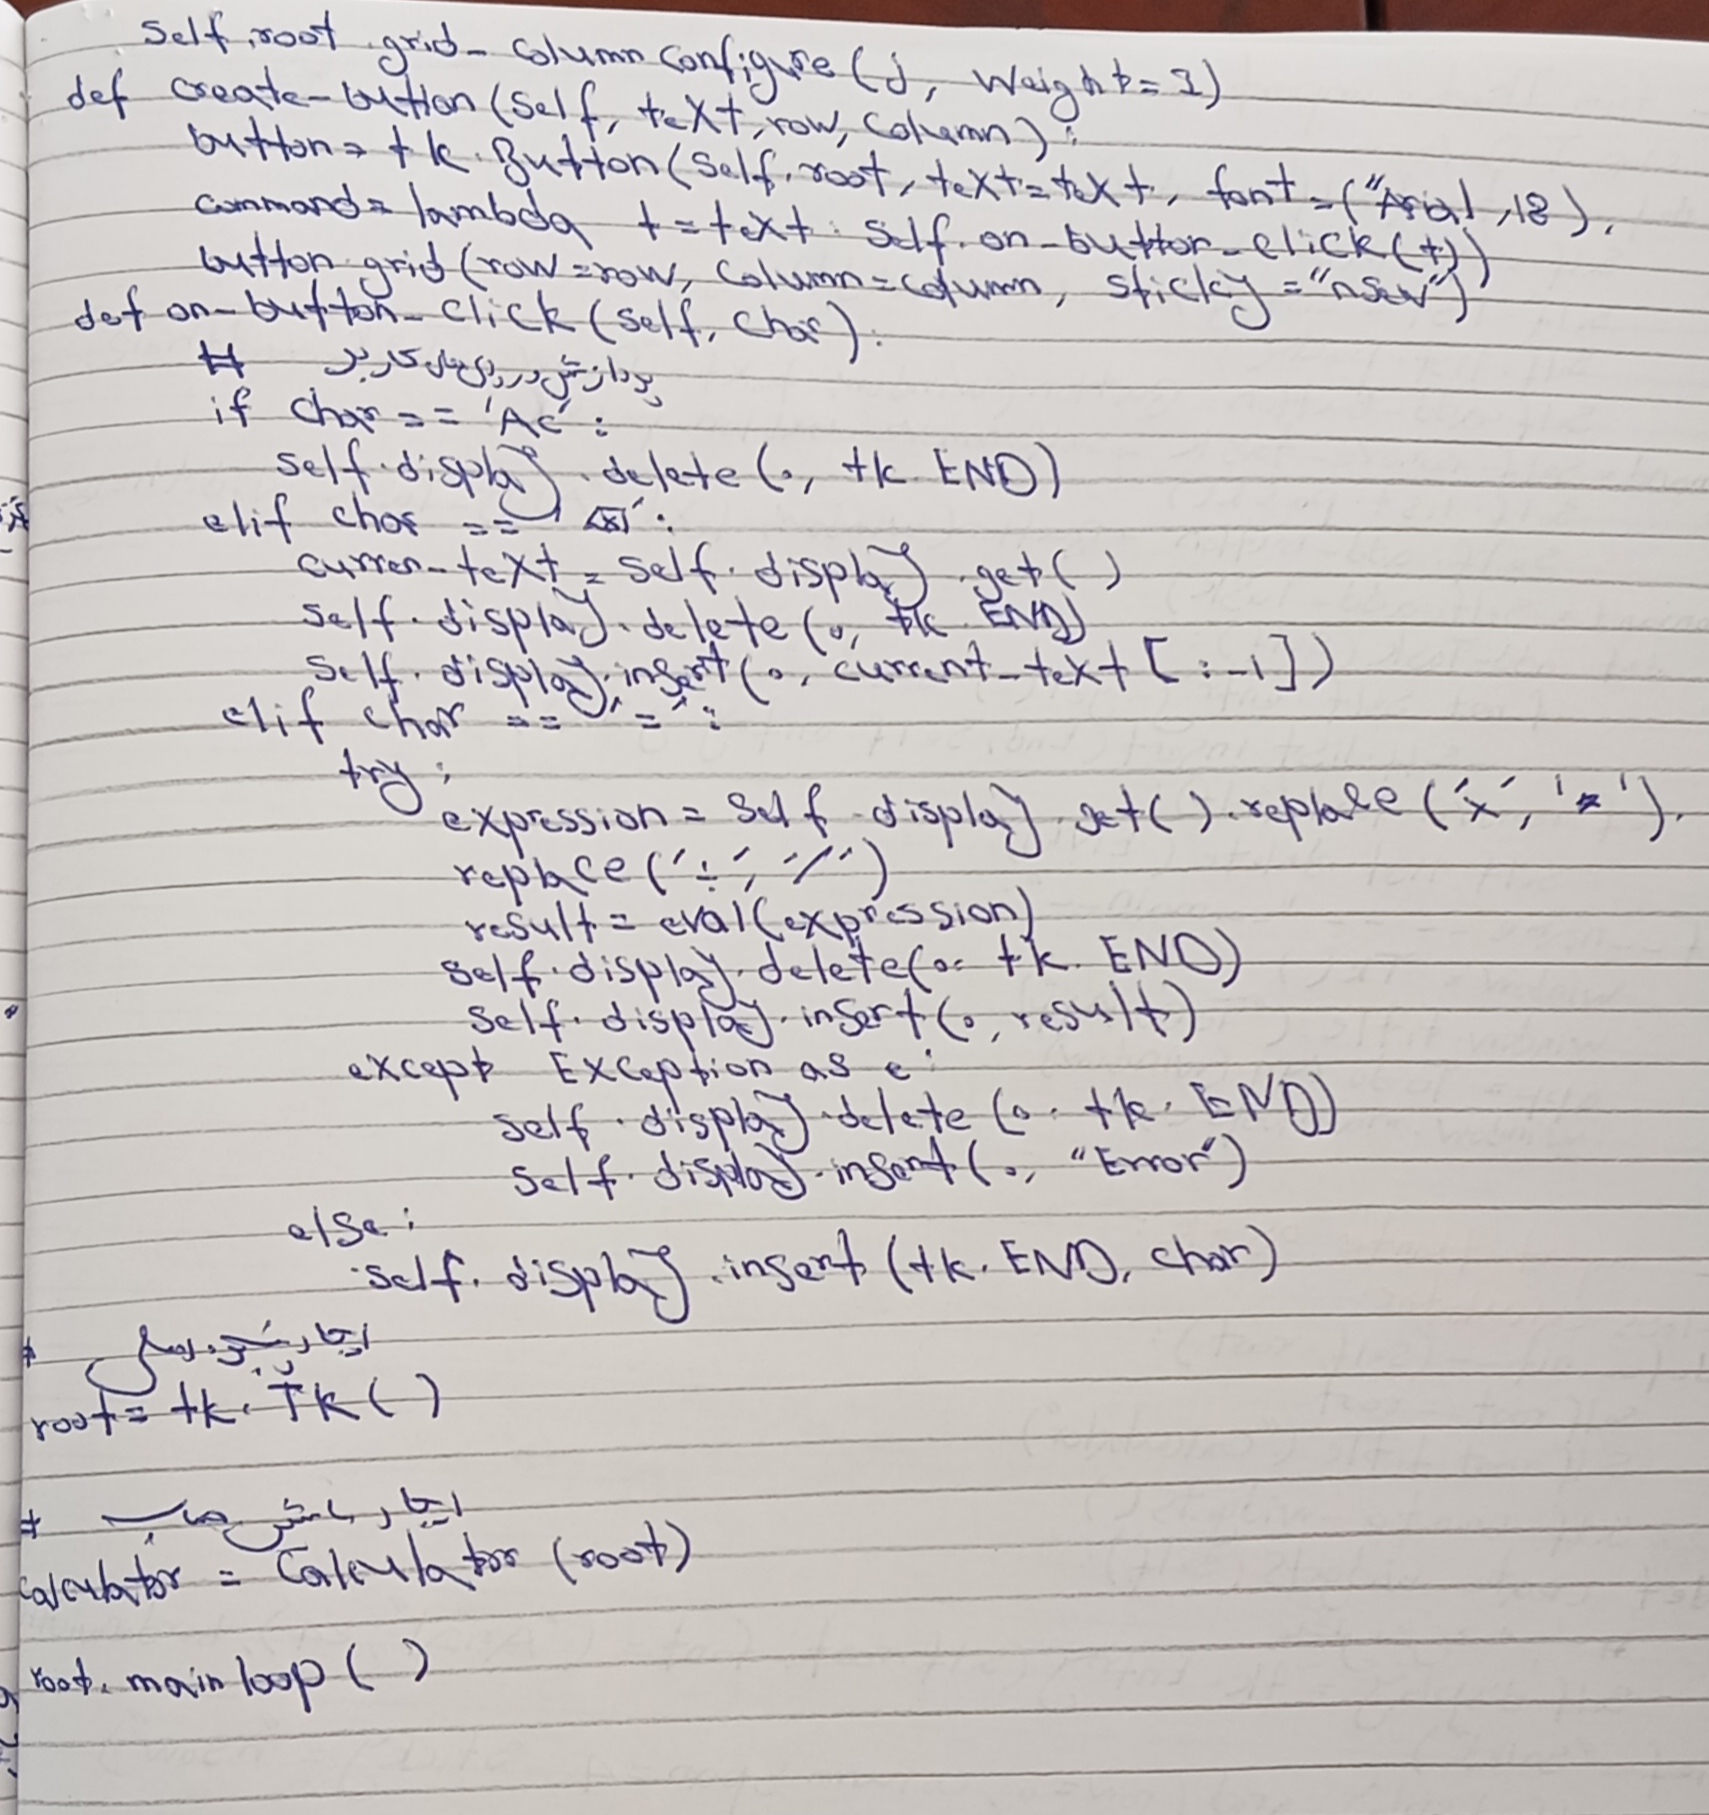 self.root.grid_columnconfigure(j, weight=1)
def create_button(self, text, row, column):
button = tk.Button(self.root, text=text, font=("Arial, 18),
command= lambda t=text: self.on_button_click(t))
button.grid(row=row, column=column, sticky="nsew")
def on_button_click(self, char):
# پردازش ورودی‌های کاربر
if char == 'AC':
self.display.delete(0, tk.END)
elif char == '⌫':
curren_text = self.display.get()
self.display.delete(0, tk.END)
self.display.insert(0, current_text[:-1])
elif char == '=':
try:
expression = self.display.get().replace('x', '*').
replace('÷', '/')
result = eval(expression)
self.display.delete(0. tk.END)
self.display.insert(0, result)
except Exception as e:
self.display.delete(0. tk.END)
self.display.insert(0, "Error")
else:
self.display.insert(tk.END, char)
# ایجاد پنجره اصلی
root = tk.Tk()
# ایجاد ماشین حساب
calculator = Calculator(root)
root.mainloop()